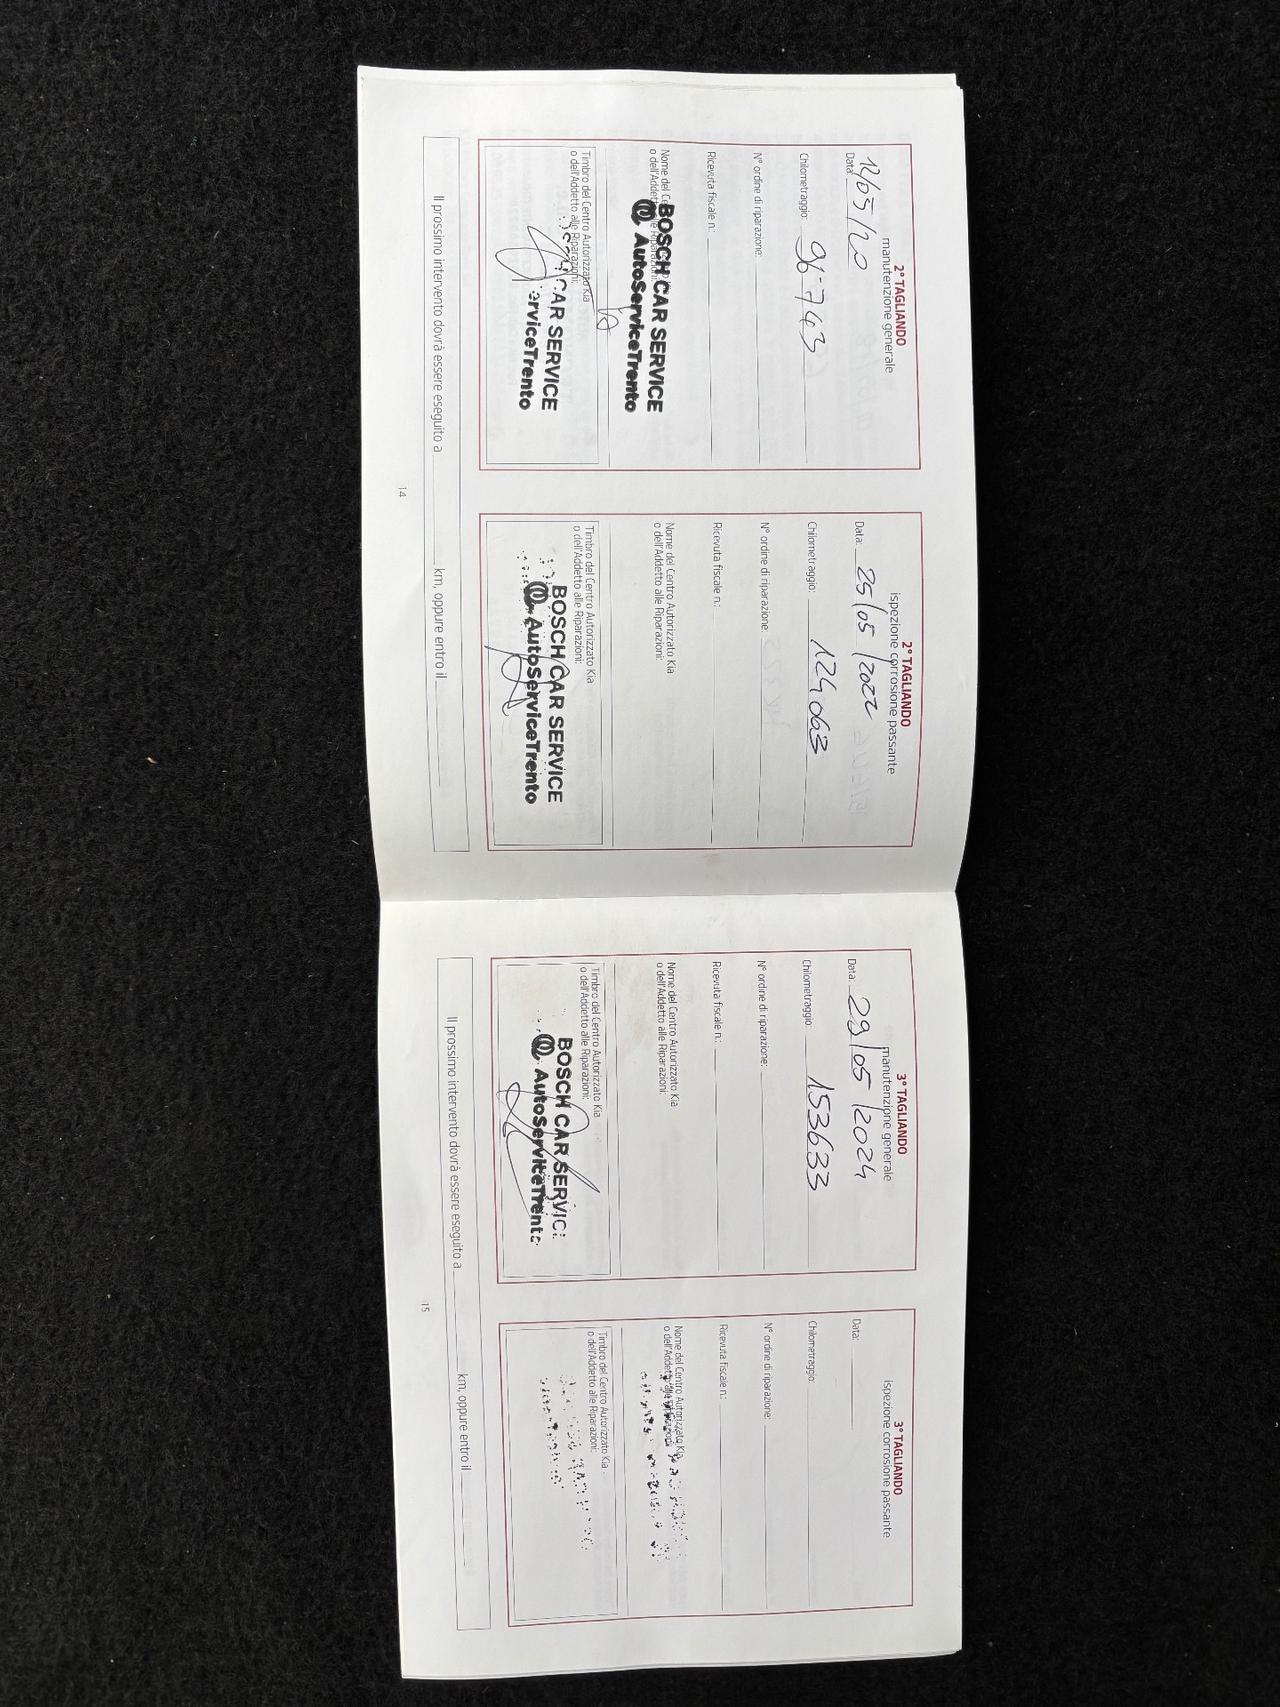 2° TAGLIANDO
manutenzione generale
Data: 12/05/20
Chilometraggio: 96743
N° ordine di riparazione:
Ricevuta fiscale n.:
Nome del Centro Autorizzato Kia
o dell'Addetto alle Riparazioni:
BOSCH CAR SERVICE
AutoServiceTrento
Timbro del Centro Autorizzato Kia
o dell'Addetto alle Riparazioni:
CAR SERVICE
erviceTrento
2° TAGLIANDO
ispezione corrosione passante
Data: 25/05/2022
Chilometraggio: 124063
N° ordine di riparazione:
Ricevuta fiscale n.:
Nome del Centro Autorizzato Kia
o dell'Addetto alle Riparazioni:
Timbro del Centro Autorizzato Kia
o dell'Addetto alle Riparazioni:
BOSCH CAR SERVICE
AutoServiceTrento
Il prossimo intervento dovrà essere eseguito a km, oppure entro il
14
3° TAGLIANDO
manutenzione generale
Data: 29/05/2024
Chilometraggio: 153633
N° ordine di riparazione:
Ricevuta fiscale n.:
Nome del Centro Autorizzato Kia
o dell'Addetto alle Riparazioni:
Timbro del Centro Autorizzato Kia
o dell'Addetto alle Riparazioni:
BOSCH CAR SERVIC
AutoServiceTrento
3° TAGLIANDO
ispezione corrosione passante
Data:
Chilometraggio:
N° ordine di riparazione:
Ricevuta fiscale n.:
Nome del Centro Autorizzato Kia
o dell'Addetto alle Riparazioni:
Timbro del Centro Autorizzato Kia
o dell'Addetto alle Riparazioni:
Il prossimo intervento dovrà essere eseguito a km, oppure entro il
15